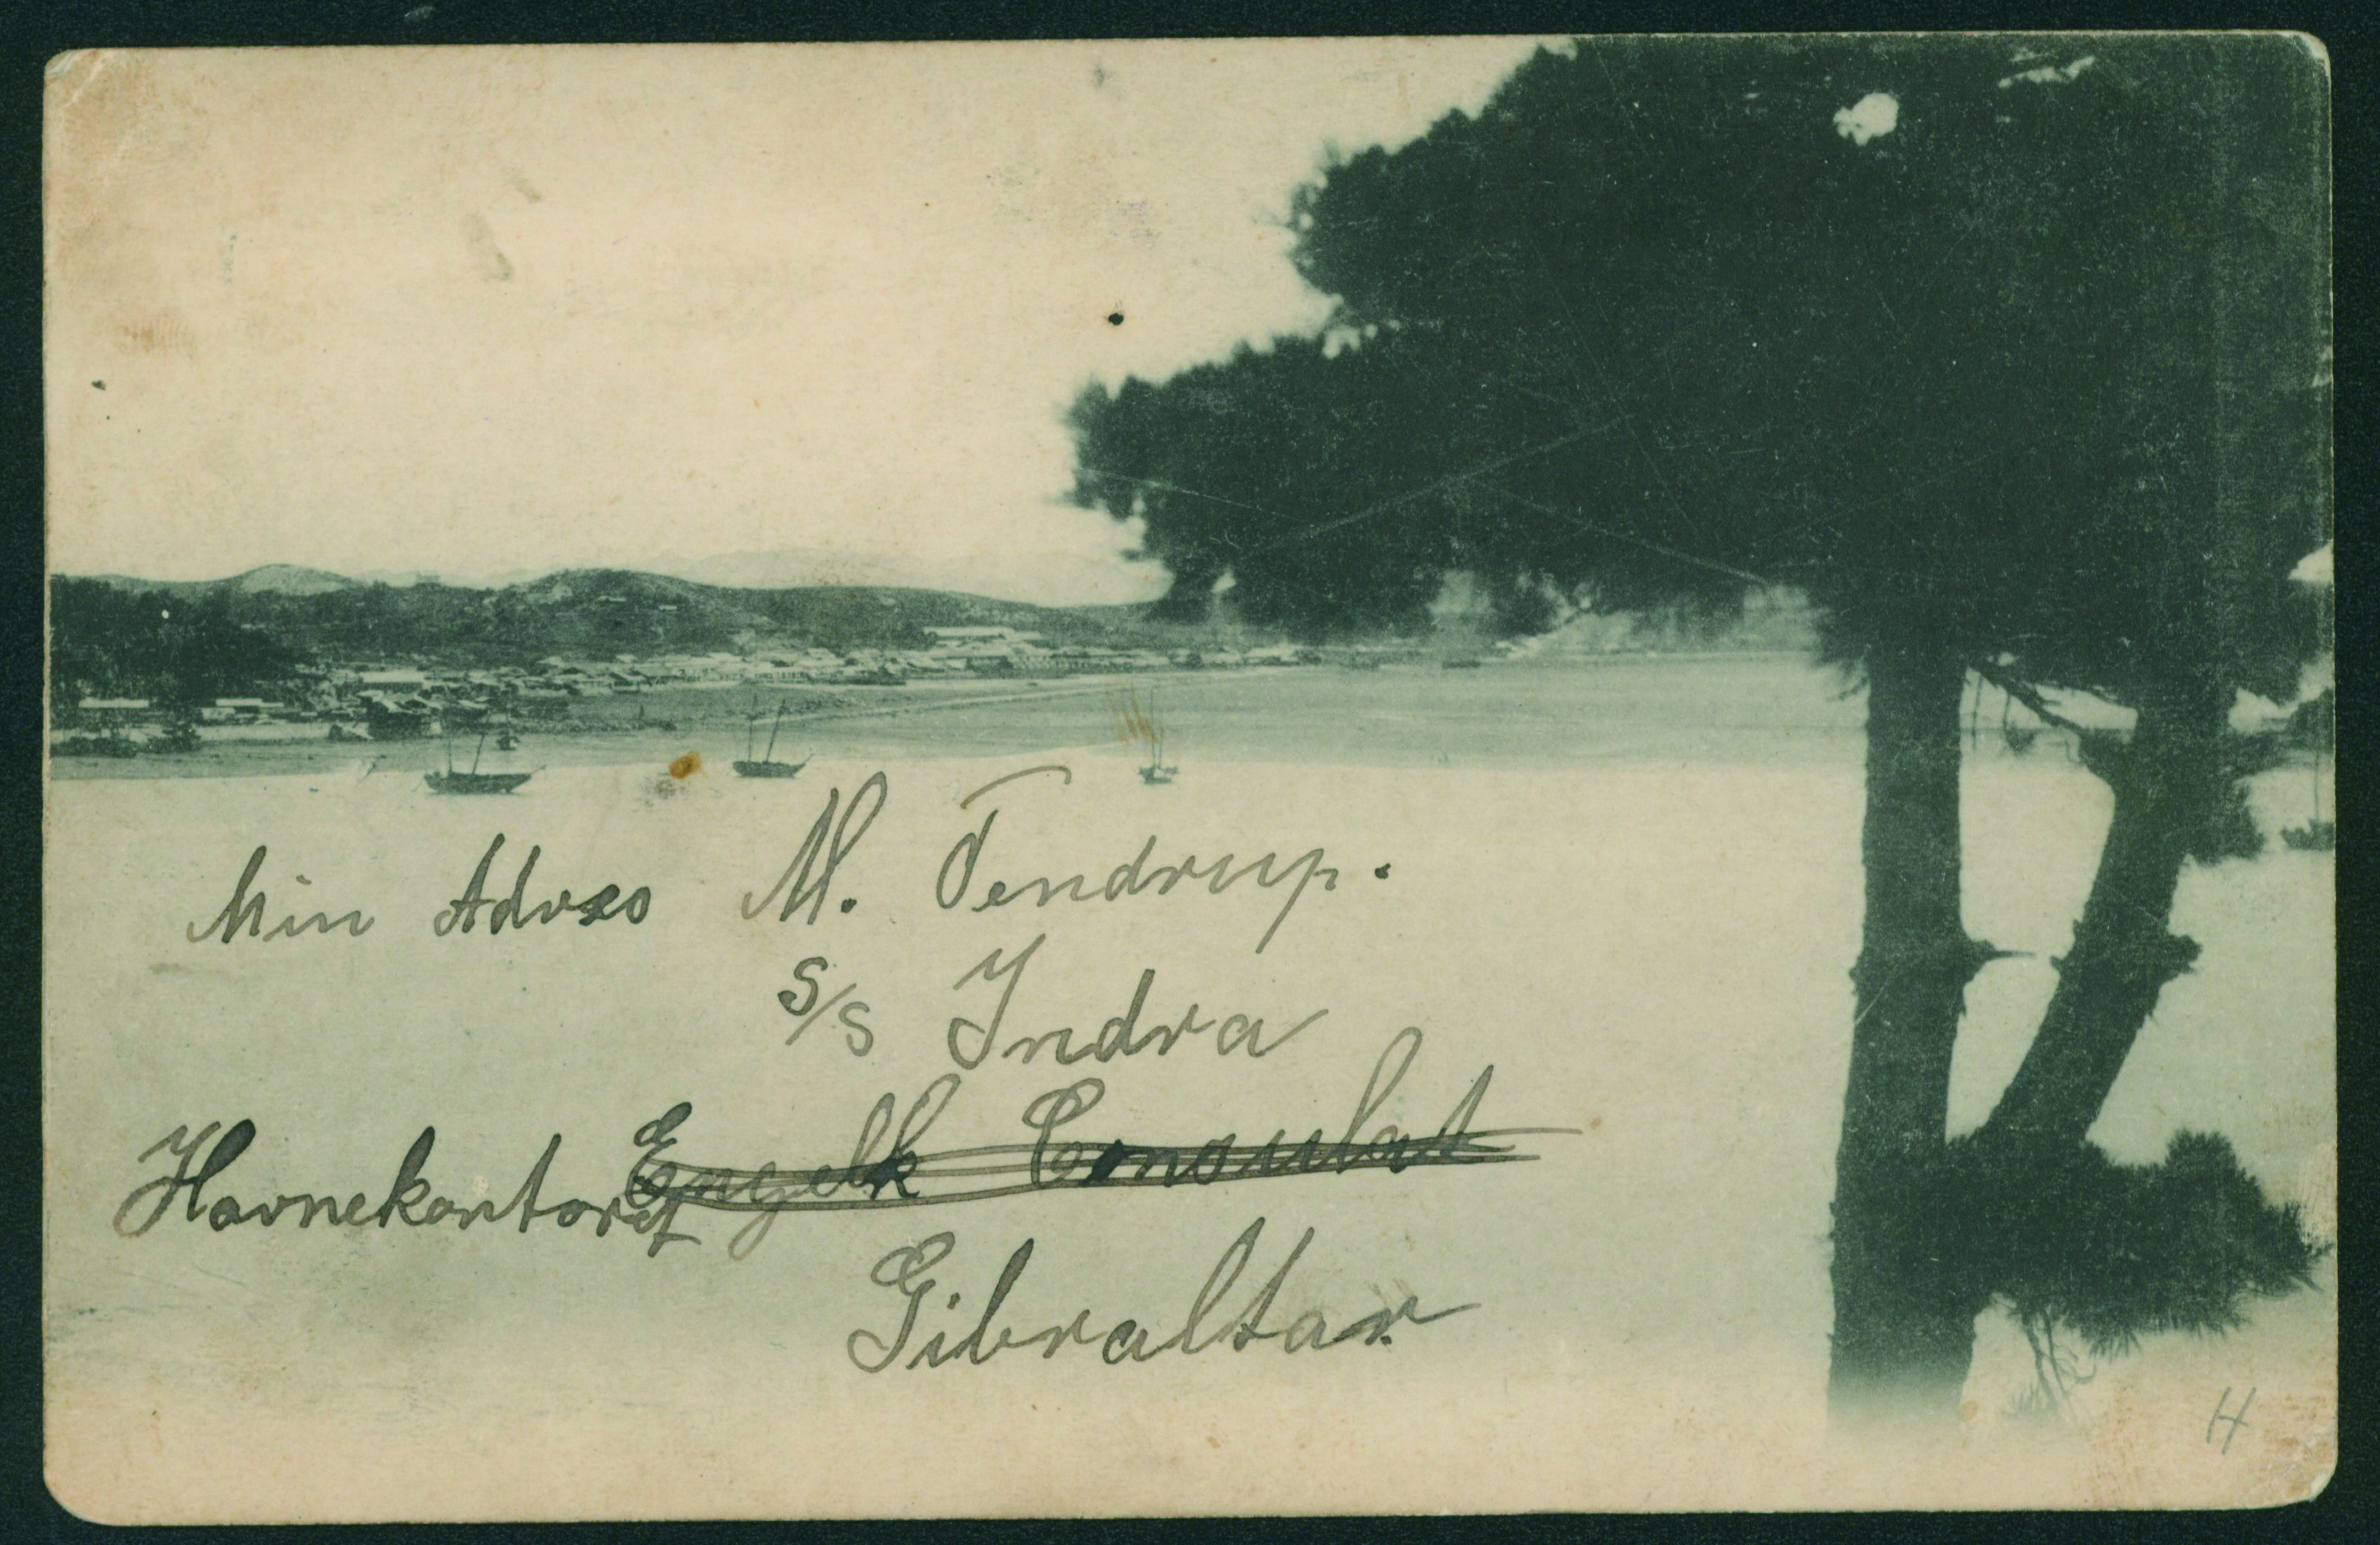 Min Adres M. Tendrup.
S/S Indra
Havnekontoret Engelk Consulat
Gibraltar
H